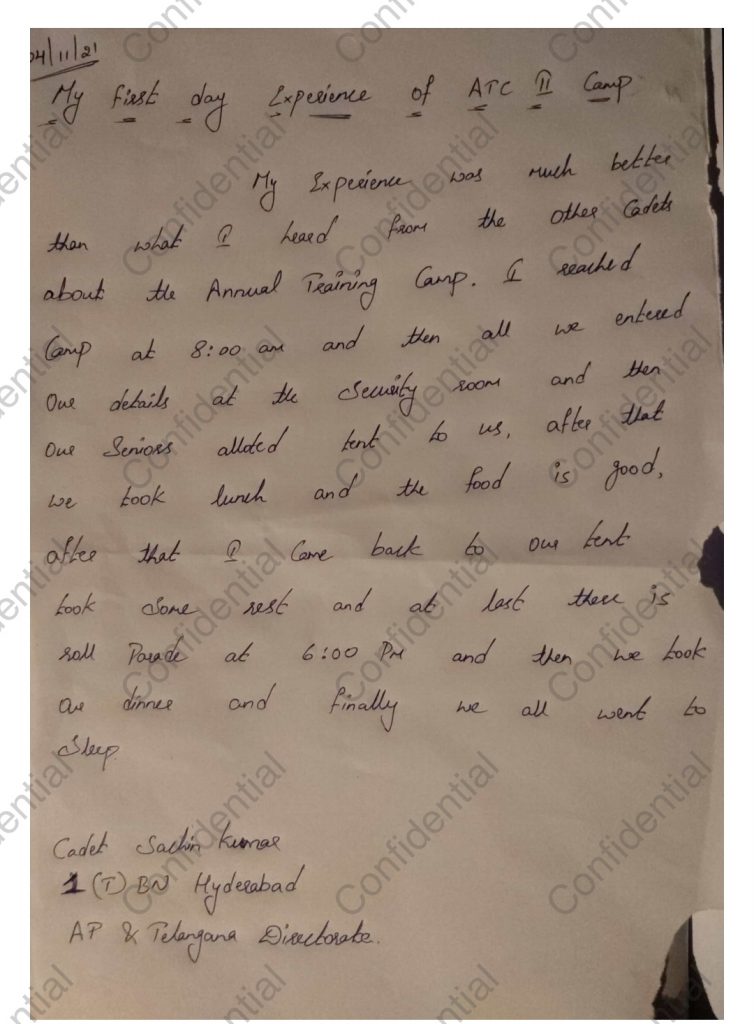 04/11/21
My first day Experience of ATC II Camp
My Experience was much better
than what I heard from the other Cadets
about the Annual Training Camp. I reached
Camp at 8:00 am and then all we entered
Our details at the Security room and then
Our Seniors alloted tent to us, after that
we took lunch and the food is good,
after that I Came back to our tent
took Some rest and at last there is
roll Parade at 6:00 PM and then we took
our dinner and finally we all went to
Sleep.
Cadet Sachin Kumar
1 (T) BN Hyderabad
AP & Telangana Directorate.
Confidential